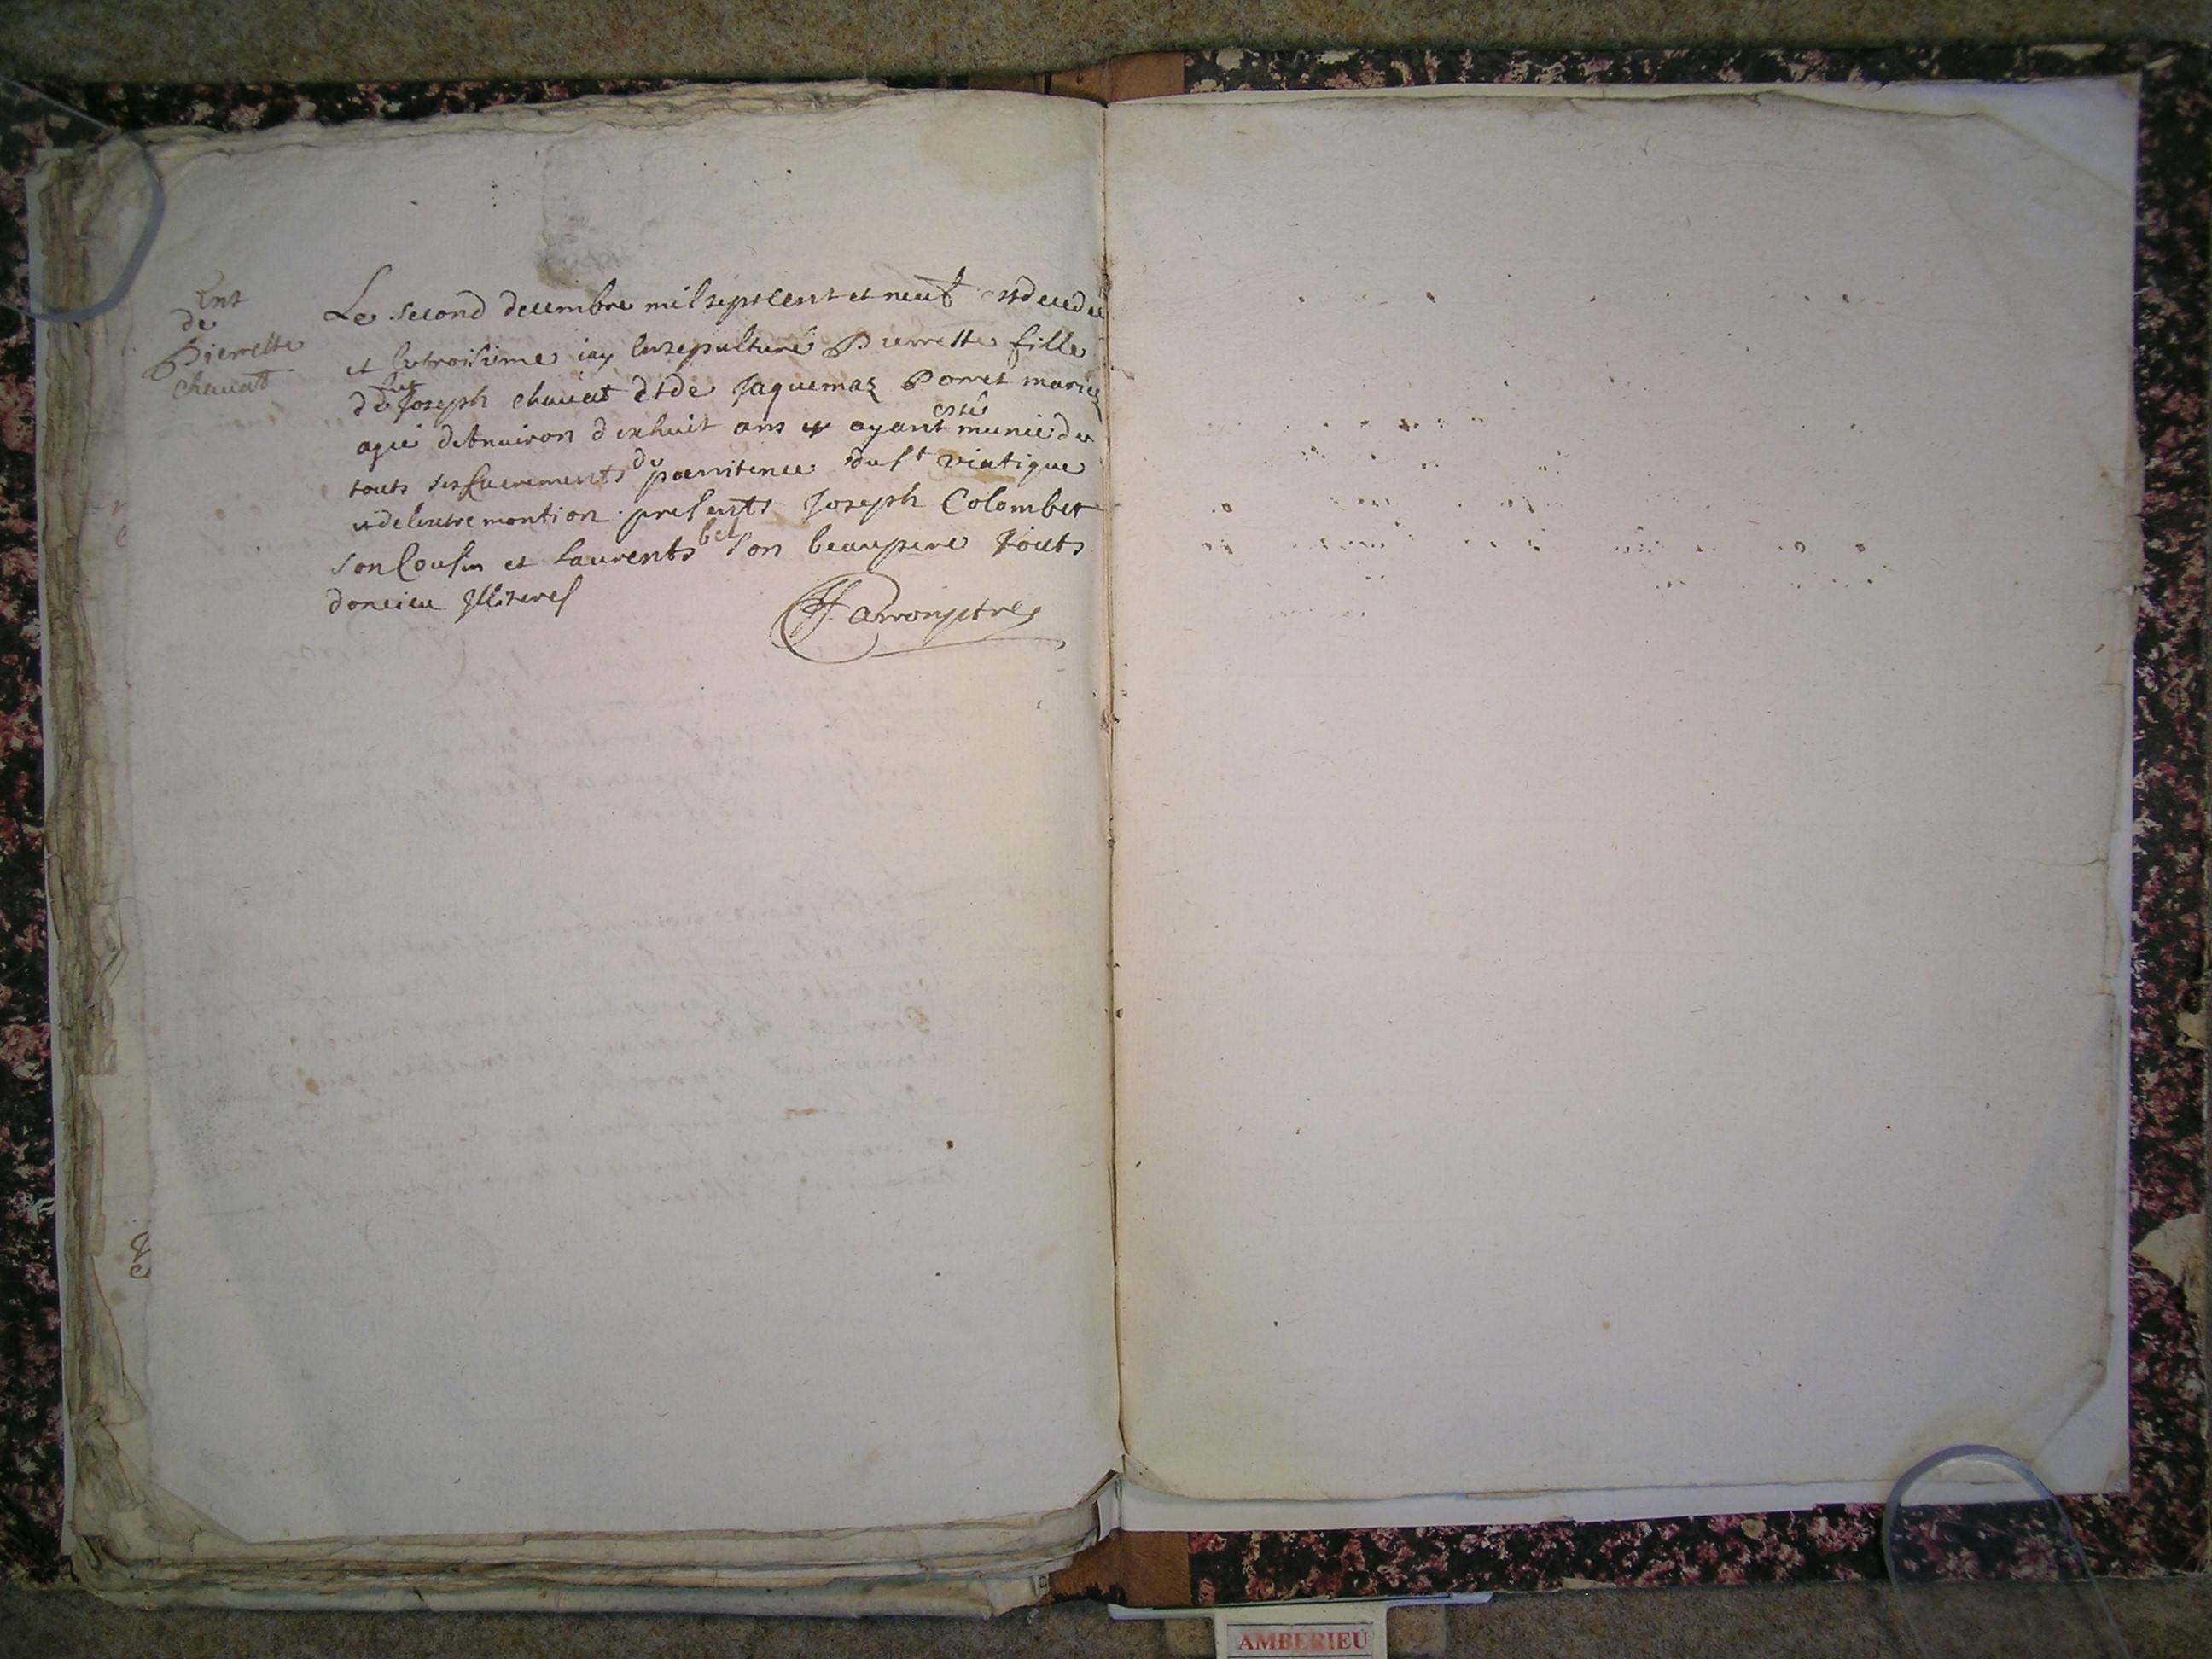 Ent
de
Pierrette
chauat
Le second decembre mil sept cent et neuf est decedee
et le troisieme iay Ensepulturé Pierrette fille
de feu Joseph chauat et de Jaquemaz Porret mariez
agee denuiron dixhuit ans ayant esté munie de
touts ses sacrements de poenitence du st viatique
et delextremontion presents Joseph Colombet
son Cousin et Laurents bel son beaupere touts
doncieu Illiteres
AMBERIEU